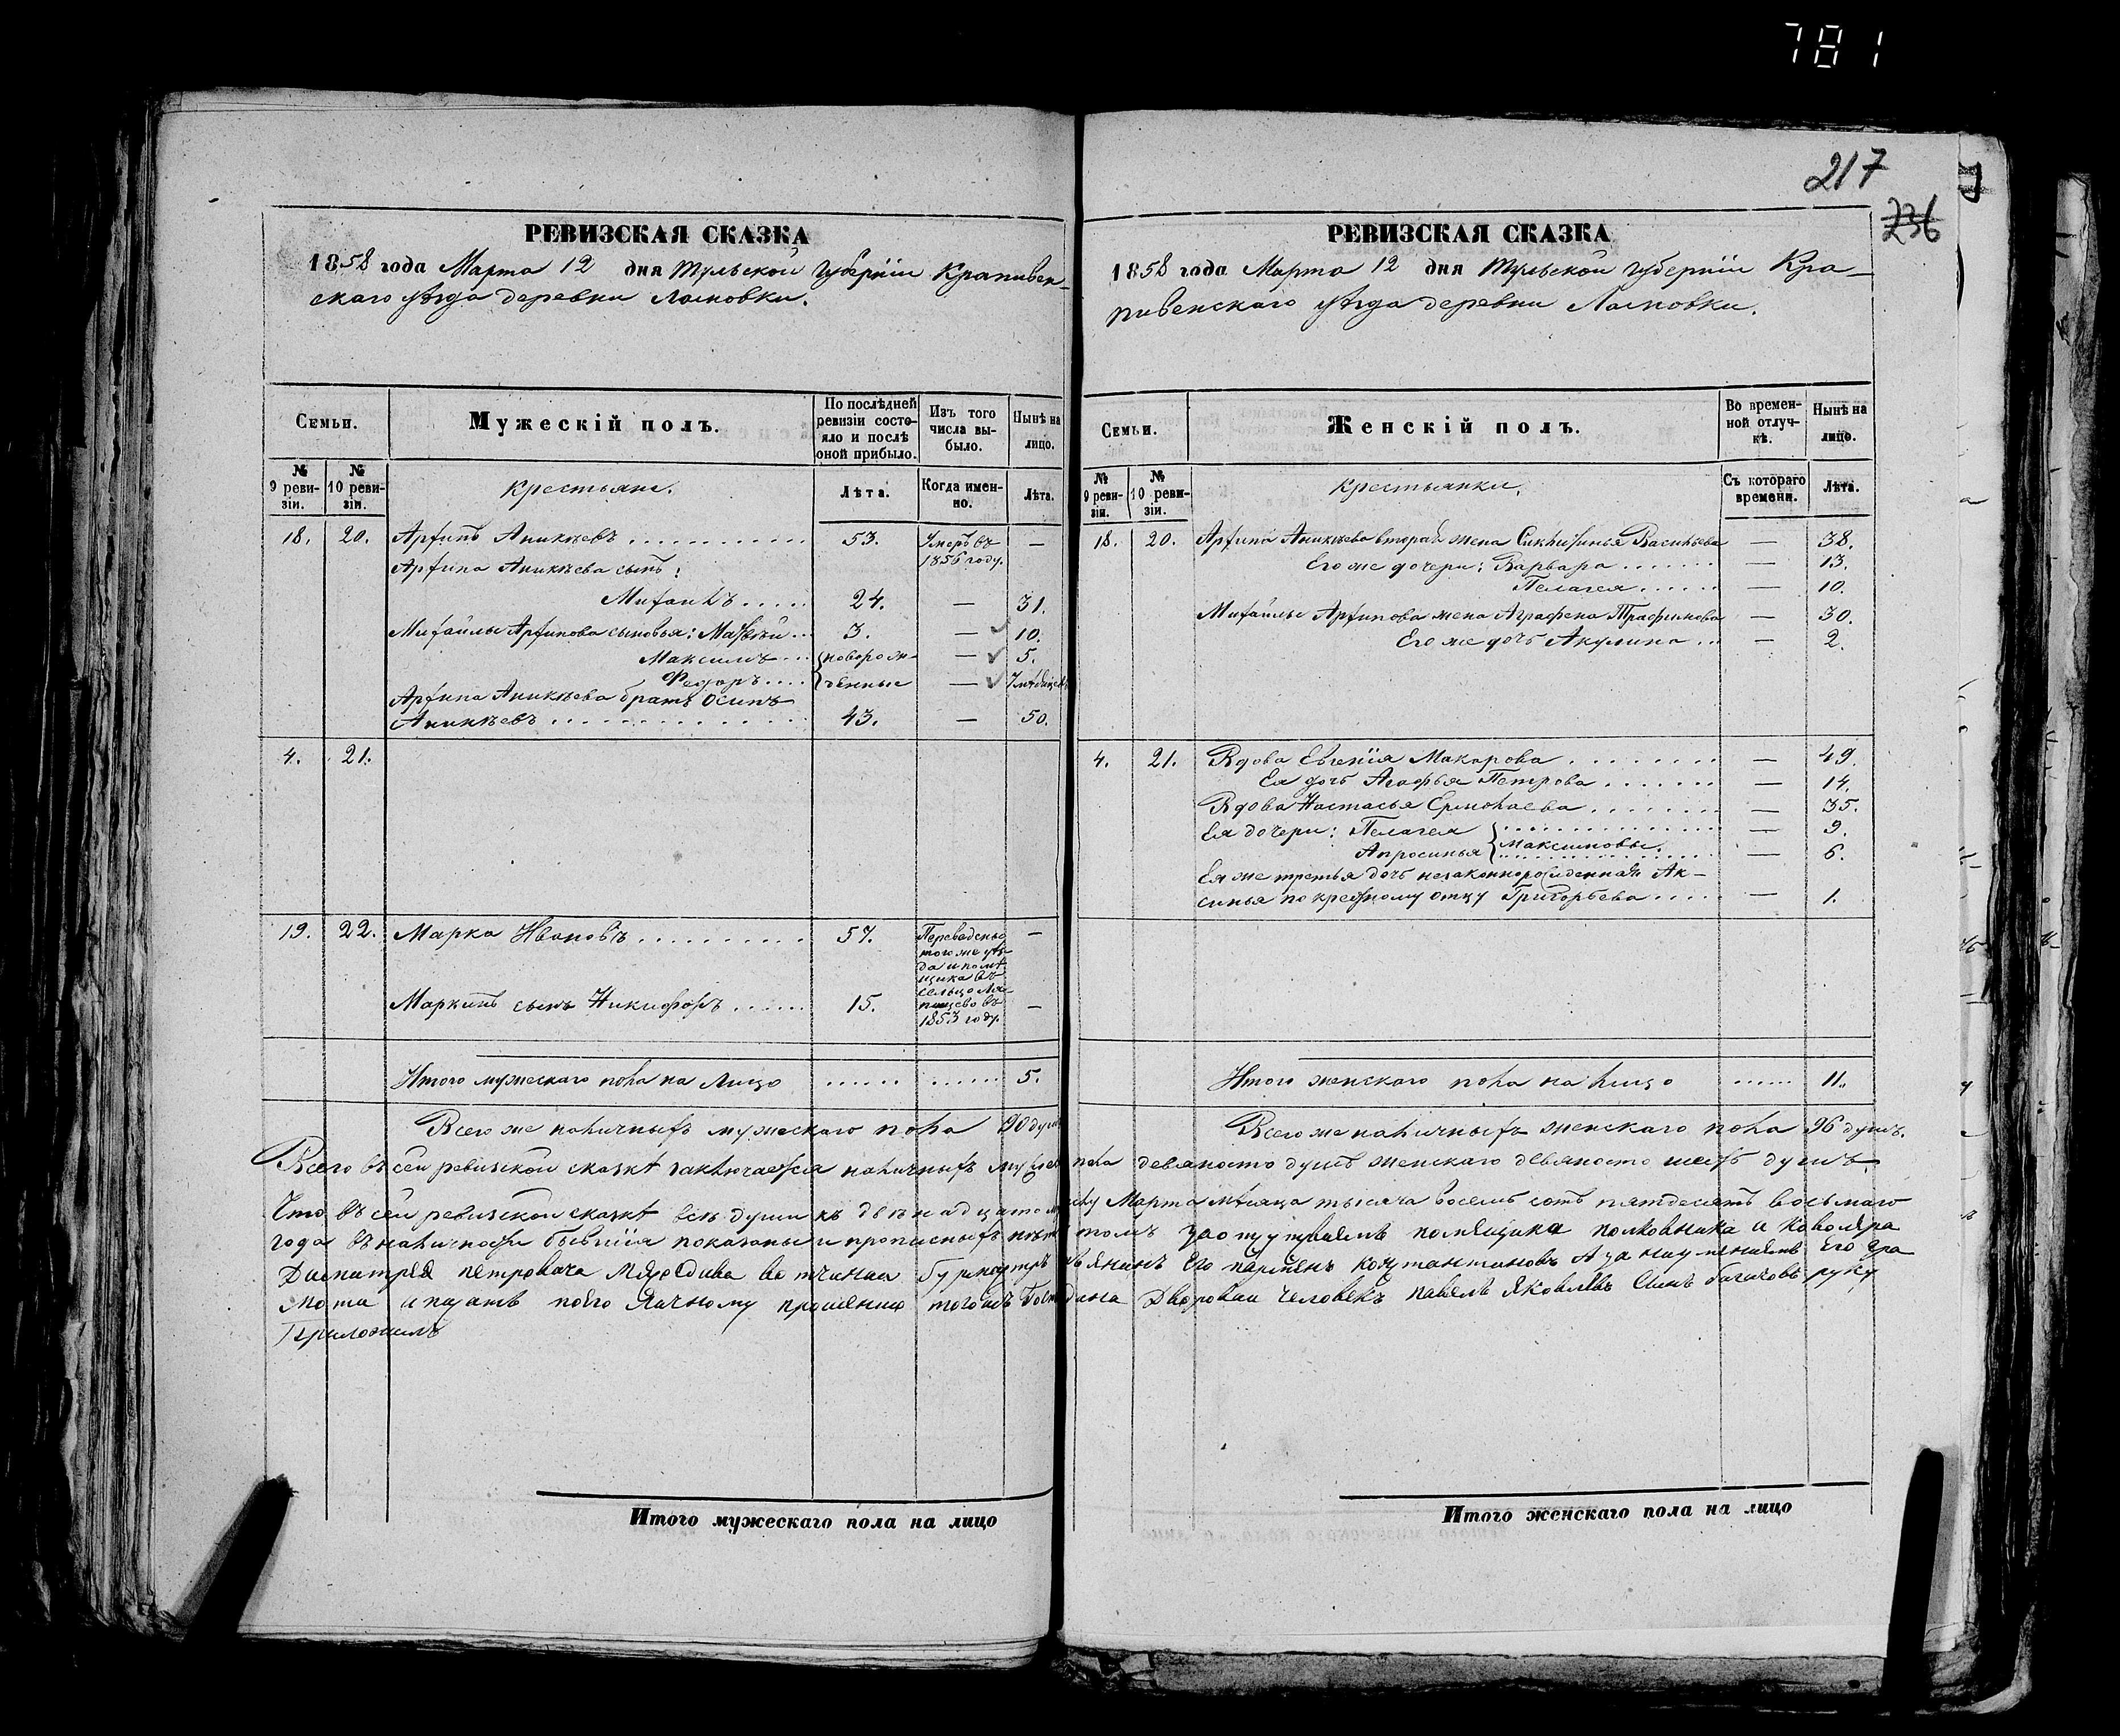 781
217
236
РЕВИЗСКАЯ СКАЗКА
1858 года Марта 12 дня Тульской Губерніи Крапивен-
скаго уѣзда деревни
Семьи.
Мужескій полъ.
По послѣдней ревизіи состояло и послѣ оной прибыло.
Изъ того числа выбыло.
Нынѣ на лицо.
№ 9 ревизіи.
№ 10 ревизіи.
Крестьяне.
Лѣта.
Когда именно.
Лѣта.
18. 20. Архипъ Аникѣевъ 53. Умеръ въ 1856 году. —
Архипа Аникѣева сынъ:
Михаилъ 24. — 31.
Михайлы Архипова сыновья: Матвѣй 3. — 10.
Максимъ новорож- — 5.
Федоръ денные —
Архипа Аникѣева братъ Осипъ
Аникѣевъ 43. — 50.
4. 21.
19. 22. Марка Ивановъ 57. Переведены —
того же уѣз-
да и помѣ-
щика въ
сельцо
Маркинъ сынъ Никифоръ 15. въ —
1853 году.
Итого мужескаго пола на лицо 5.
Всего же наличныхъ мужескаго пола 90 душъ
РЕВИЗСКАЯ СКАЗКА
1858 года Марта 12 дня Тульской Губерніи Кра-
пивенскаго уѣзда деревни
Семьи.
Женскій полъ.
Во временной отлучкѣ.
Нынѣ на лицо.
№ 9 ревизіи.
№ 10 ревизіи.
Крестьянки.
Съ котораго времени.
Лѣта.
18. 20. Архипа Аникѣева вторая жена Васильева — 38.
Его же дочери: Варвара — 13.
Пелагея — 10.
Михайлы Архипова жена Аграфена Трафимова — 30.
Его же дочь Акулина — 2.
4. 21. Вдова Евгенія Макарова — 49.
Ея дочь Агафья Петрова — 14.
Вдова Настасья Ермолаева — 35.
Ея дочери: Пелагея — 9.
Апросинья Максимовы — 6.
Ея же третья дочь незаконнорожденная Ак-
синья по крестному отцу Григорьева — 1.
Итого женскаго пола на лицо 11.
Всего же наличныхъ женскаго пола 96 душъ.
Всего въ сей ревизской сказкѣ заключается наличныхъ мужеск пола девяносто душъ женскаго девяносто шесть душъ.
Что въ сей ревизской сказкѣ всѣ души къ двѣнадцатому числу Марта мѣсяца тысяча восемь сотъ пятдесятъ восьмаго
года въ наличности бывшія показаны и прописныхъ нѣтъ томъ помѣщика полковника и кавалера
Дмитрея петровича вотчинай бурмистръ константиновъ
и по его личному прошению Дваровай человекъ павелъ Яковлевъ Сынъ руку
Приложилъ
Итого мужескаго пола на лицо
Итого женскаго пола на лицо